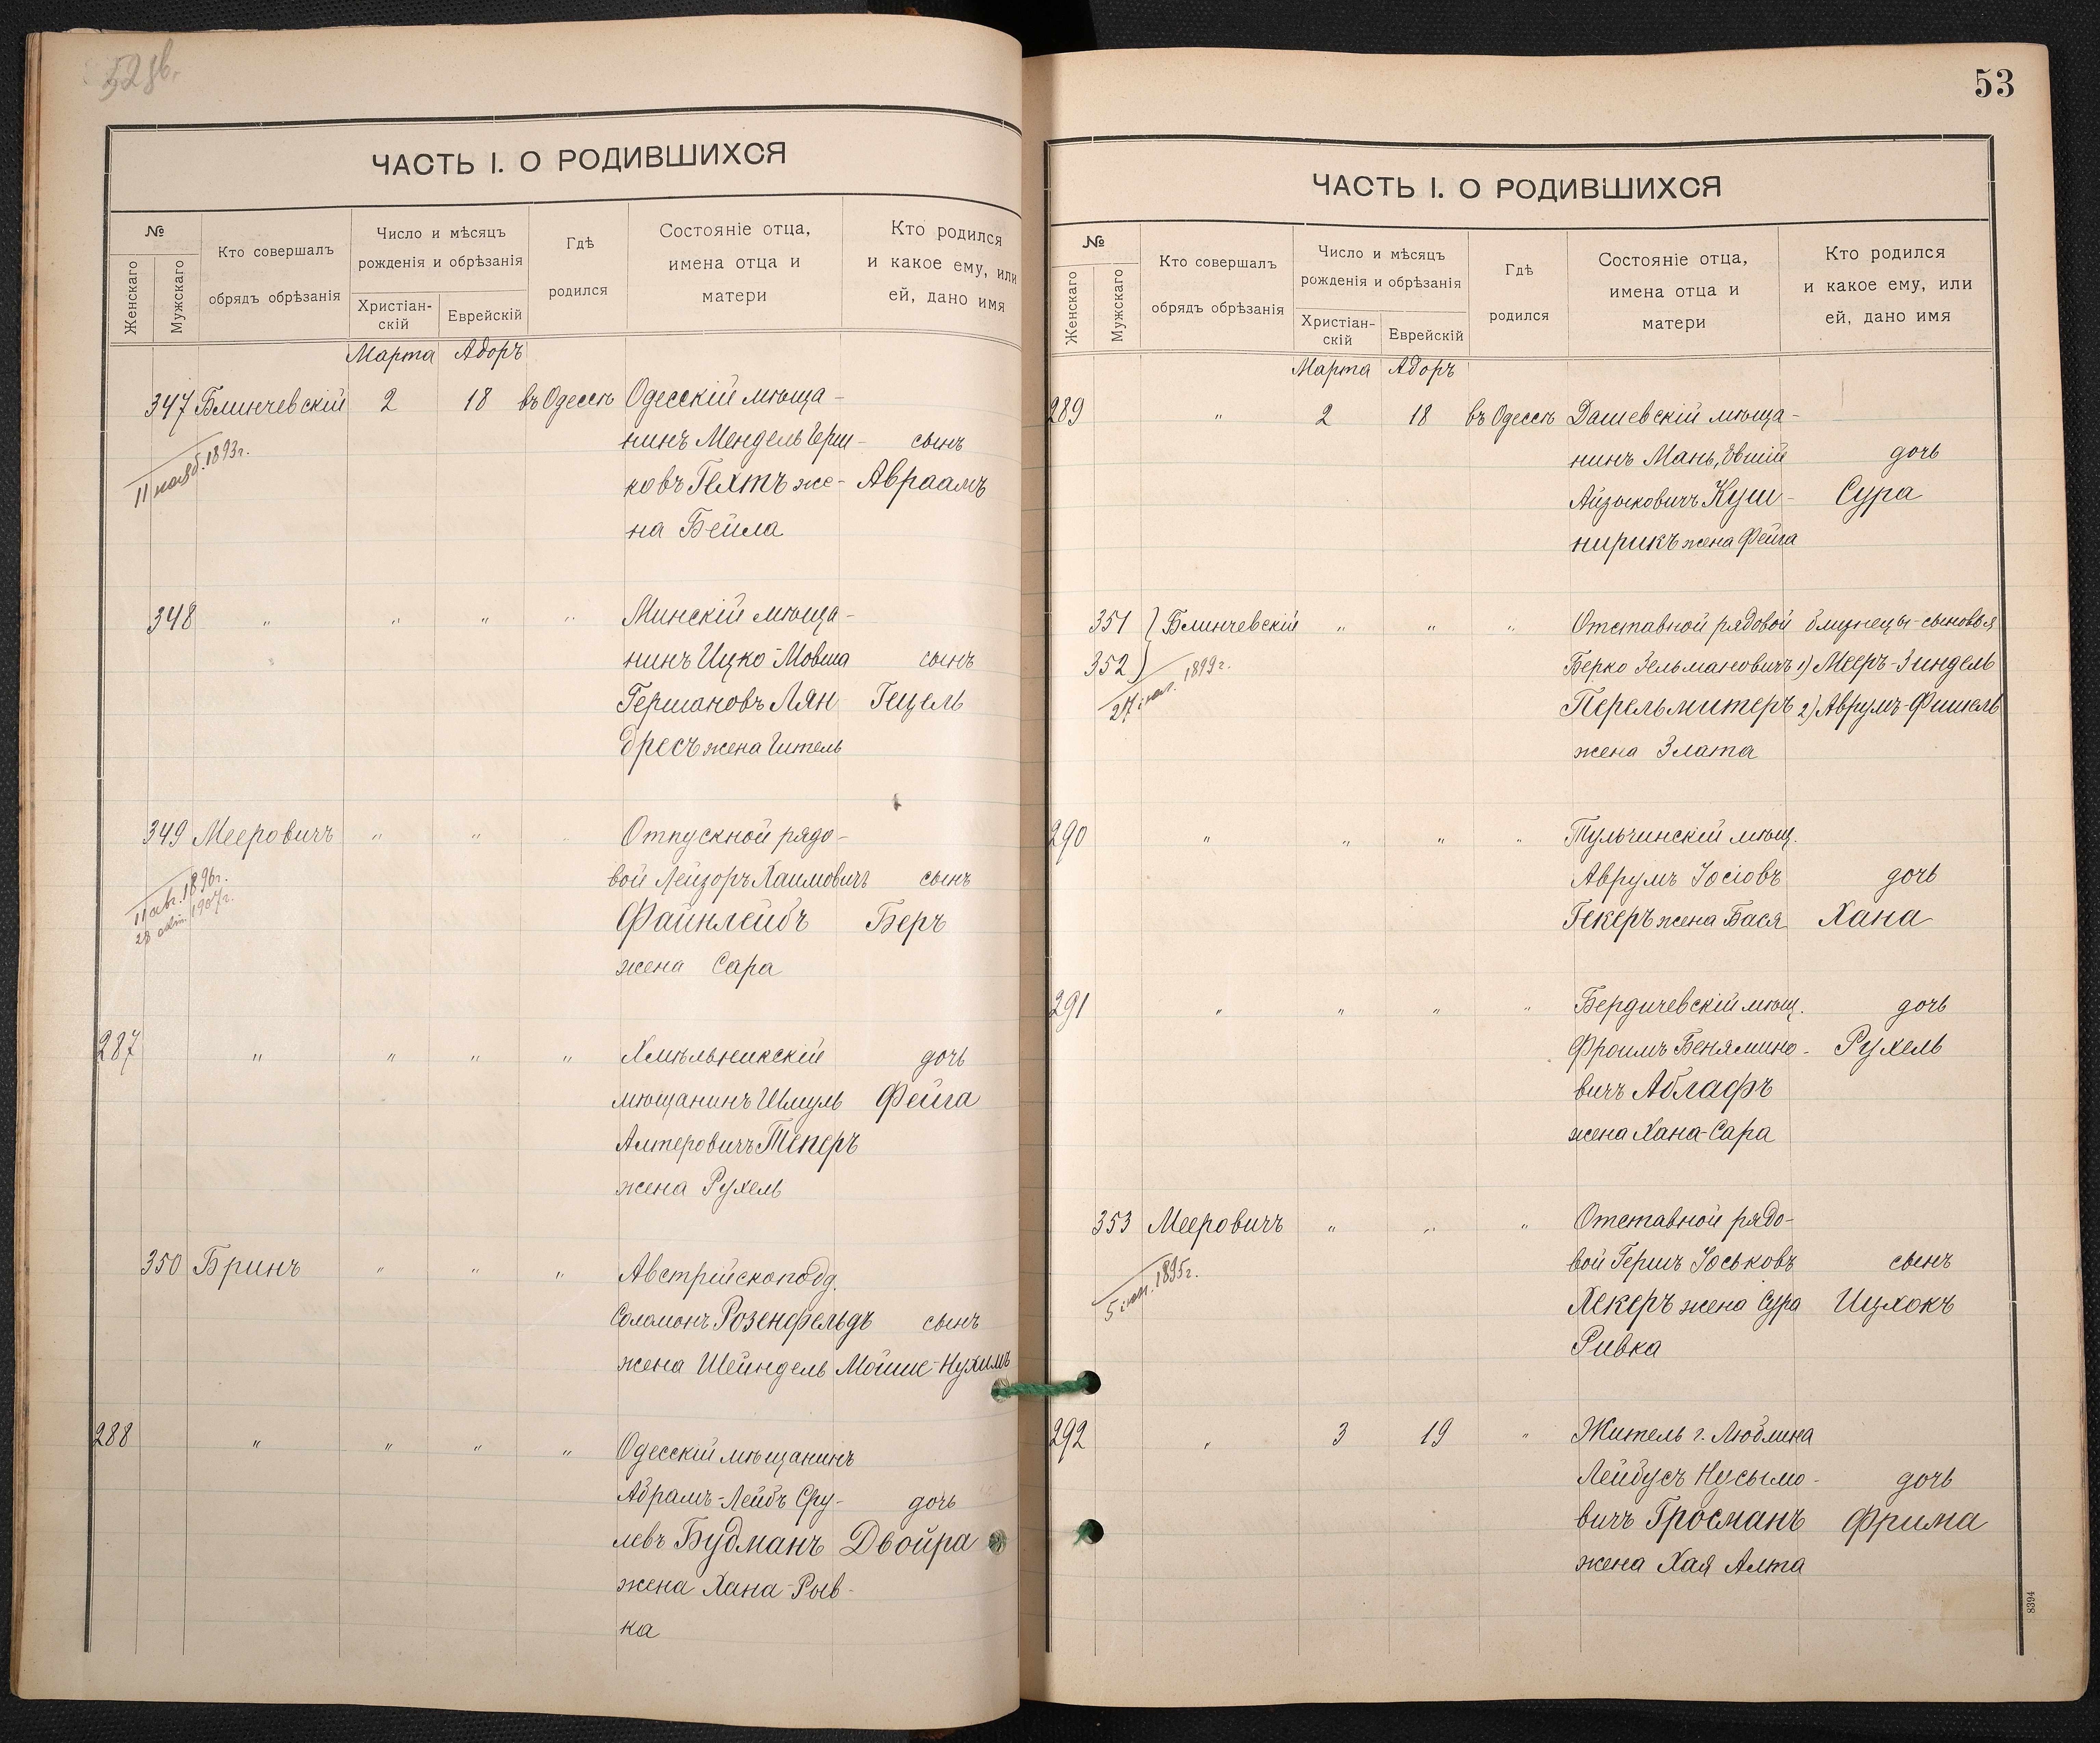 52 об.
ЧАСТЬ I. О РОДИВШИХСЯ
№
Женскаго
Мужскаго
Кто совершалъ
обрядъ обрѣзанія
Число и мѣсяцъ
рожденія и обрѣзанія
Христіан-
скій
Еврейскій
Гдѣ
родился
Состояніе отца,
имена отца и
матери
Кто родился
и какое ему, или
ей, дано имя
Марта Адоръ
347 Блинчевскій 2 18 въ Одессѣ Одесскій мѣща-
11 нояб. 1893 г.
нинъ Мендель Герш- сынъ
ковъ Гехтъ же- Авраамъ
на Бейла
348 " " " " Минскій мѣща-
нинъ Ицко-Мовша сынъ
Гершановъ Лян Гецель
дресъ жена Гитель
349 Мееровичъ " " " Отпускной рядо-
11 авг. 1896 г.
28 1907 г.
вой Лейзоръ Хаимовичъ сынъ
Файнлейбъ Беръ
жена Сара
287 " " " " Хмѣльникскій дочь
мѣщанинъ Шмуль Фейга
Алтеровичъ Текеръ
жена Рухель
350 Бринъ " " " Австрійскоподд.
Соломонъ Розенфельдъ сынъ
жена Шейндель Мойше-Нухимъ
288 " " " " Одесскій мѣщанинъ
Абрамъ-Лейбъ Сру- дочь
левъ Будманъ Двойра
жена Хана-Рыв-
ка
53
ЧАСТЬ I. О РОДИВШИХСЯ
№
Женскаго
Мужскаго
Кто совершалъ
обрядъ обрѣзанія
Число и мѣсяцъ
рожденія и обрѣзанія
Христіан-
скій
Еврейскій
Гдѣ
родился
Состояніе отца,
имена отца и
матери
Кто родился
и какое ему, или
ей, дано имя
Марта Адоръ
289 " 2 18 въ Одессѣ Дашевскій мѣща-
нинъ Мань, Овшій дочь
Айзыковичъ Куш- Сура
нирикъ жена Фейга
351 } Блинчевскій " " " Отставной рядовой близнецы-сыновья
352 } Берко Зельмановичъ 1) Мееръ-Зиндель
1899 г.
Перельмитеръ 2) Аврумъ-Фишель
жена Злата
290 " " " " Тульчинскій мѣщ.
Аврумъ Іосіовъ дочь
Гекеръ жена Бася Хана
291 " " " " Бердичевскій мѣщ. дочь
Фроимъ Бенямино- Рухель
вичъ Аблафъ
жена Хана-Сара
353 Мееровичъ " " " Отставной рядо-
5 1895 г.
вой Гершъ Юськовъ сынъ
Хекеръ жена Сура Ицхокъ
Ривка
292 " 3 19 " Житель г. Люблина
Лейбусъ Нусымо- дочь
вичъ Гросманъ Фрима
жена Хая Алта
8394